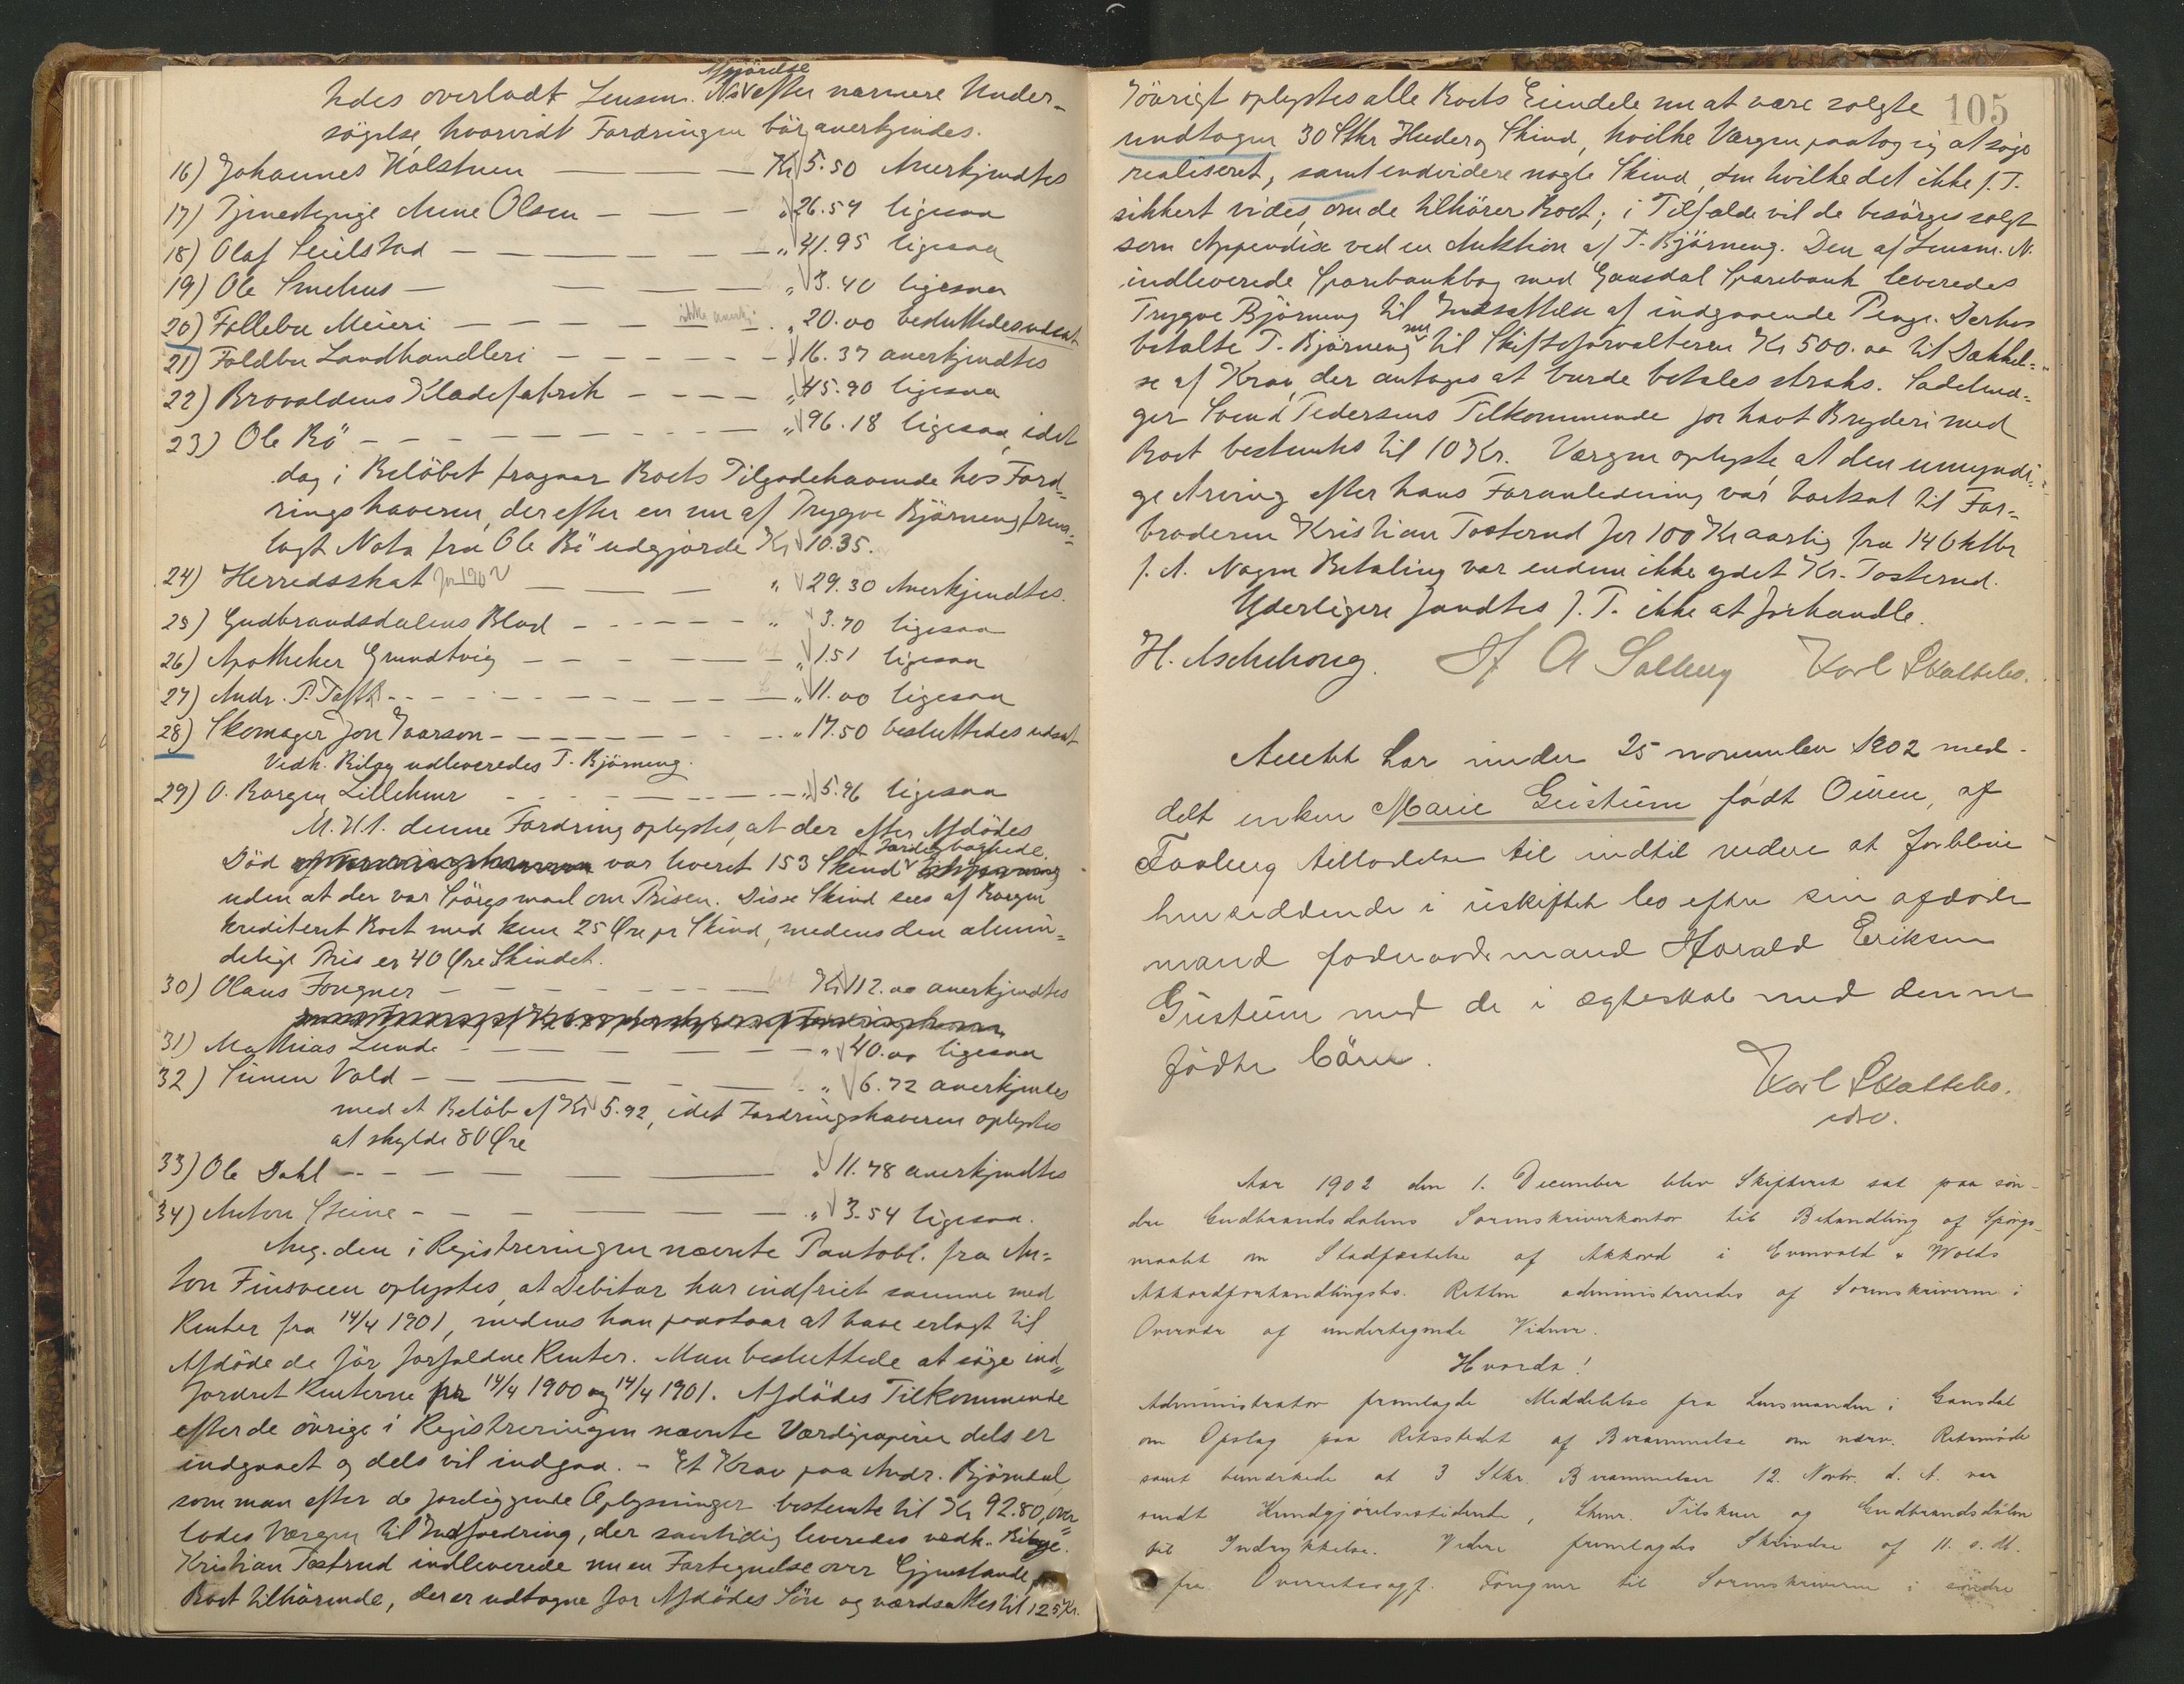 tedes overladt Lensm. N's Afgjörelse efter nærmere Under-
sögelse, hvorvidt Fordringen bör anerkjendes.
16) Johannes Kalstuen — Kr 5.50 Anerkjendtes
17) Tjenestepige Anne Olsen — " 26.54 ligesaa
18) Olaf Seielstad — " 41.95 ligesaa
19) Ole Smehus — " 3.40 ligesaa
20) Follebu Meieri — ikke anerkj. " 20.00 besluttedes udsat
21) Foldbu Landhandleri — " 16.37 anerkjendtes
22) Brovoldens Klædefabrik — " 45.90 ligesaa
23) Ole Bö — " 96.18 ligesaa, idet
dog i Belöbet fragaar Boets Tilgodehavende hos Ford-
ringshaveren, der efter en nu af Trygve Björneng frem-
lagt Nota fra Ole Bö udgjorde Kr 10.35.
24) Herredsskat for 190 — " 29.30 Anerkjendtes.
25) Gudbrandsdalens Blad — " 3.70 ligesaa
26) Apotheker Grundtvig — " 1.51 ligesaa
27) Andr. P. Toft — " 11.00 ligesaa
28) Skomager Jon Ivarson — " 17.50 besluttedes udsat
Vedk. Bilag udleveredes T. Björneng.
29) O. Borgen, Lillehmr — " 5.96 ligesaa
M. H. t. denne Fordring oplystes, at der efter Afdödes
Död var leveret 153 Skind færdigbagtede
uden at der var Spörgsmaal om Prisen. Disse Skind sees af Borgen
krediteret Boet med kun 25 Öre pr Skind, medens den almin-
delige Pris er 40 Öre Skindet.
30) Olaus Fougner — bet Kr 12.00 anerkjendtes
31) Mathias Lunde — " 40.00 ligesaa
32) Simen Vold — " 6.72 anerkjentes
med et Belöb af Kr 5.92, idet Fordringshaveren oplystes
at skylde 80 Öre
33) Ole Dahl — " 11.78 anerkjendtes
34) Anton Steine — " 3.54 ligesaa.
Ang. den i Registreringen nævnte Pantobl. fra An-
ton Finsveen oplystes, at Debitor har indfriet samme med
Renter fra 14/4 1901, medens han paastaar at have erlagt til
Afdöde de för forfaldne Renter. Man besluttede at söge ind-
fordret Renterne pr 14/4 1900 og 14/4 1901. Afdödes Tilkommende
efter de övrige i Registreringen nævnte Værdipapirer dels er
indgaaet og dels vil indgaa. – Et Krav paa Andr. Björndal,
som man efter de foreliggende Oplysninger bestemte til Kr 92.80, over-
lodes Værgen til Indfordring, der samtidig leveredes vedk. Bilage.
Kristian Tostrud indleverede nu en Fortegnelse over Gjenstande,
Boet tilhörende, der er udtagne for Afdödes Sön og værdsættes til 125 Kr.
105
Iövrigt oplystes alle Boets Eiendele nu at være solgte
undtagen 30 Stkr Huder og Skind, hvilke Værgen paatog sig at söge
realiseret, samt endvidere nogle Skind, om hvilke det ikke f. T.
sikkert vides, om de tilhörer Boet; i Tilfælde vil de besörges solgt
som Appendix ved en Auktion af T. Björneng. Den af Lensm. N.
indleverede Sparebankbog med Gausdal Sparebank leveredes
Trygve Björneng til Indsættelse af indgaaende Penge. Derhos
betalte T. Björneng nu til Skifteforvalteren Kr 500.00 til Dækkel-
se af Krav, der antoges at burde betales straks. Sadelmа-
ger Svend Pedersens Tilkommende for havt Bryderi med
Boet bestemtes til 10 Kr. Værgen oplyste at den umyndi-
ge Arving efter hans Foranledning var bortsat til Far-
broderen Kristian Tosterud for 100 Kr aarlig fra 14 Oktbr
f. A. Nogen Betaling var endnu ikke ydet Kr. Tosterud.
Yderligere fandtes f. T. ikke at forhandle.
H. Aschehoug. H A Solberg Karl Skattebo.
Amtet har under 25 november 1902 med-
delt enken Marie Gustum født Ouren, af
Faaberg tilladelse til indtil videre at forblive
hensiddende i uskiftet bo efter sin afdøde
mand fødevarmand Harald Eriksen
Gustum med de i ægteskab med denne
fødte börn.
Karl Skattebo.
edsv.
Aar 1902 den 1. December blev Skifteret sat paa søn-
dre Gudbrandsdalens Sorenskriverkontor til Behandling af Spørgs-
maalet om Stadfæstelse af Akkord i Evenvold & Wolds
Akkordforhandlingsbo. Retten administreredes af Sorenskriveren i
Overvær af undertegnede Vidner.
Hvorda!
Administrator fremlagde Meddelelse fra Lensmanden i Gausdal
om Opslag paa Retsstedet af Berammelse om nærv. Retsmøde
samt bemærkede at 3 Stkr. Berammelser 12. Novbr. d. A. var
sendt Kundgjörelsestidende, Lhmr. Tilskuer og Gudbrandsdølen
til Indrykkelse. Videre fremlagdes Skrivelse af 11. s. M.
fra Overretssagf. Fougner til Sorenskriveren i søndre